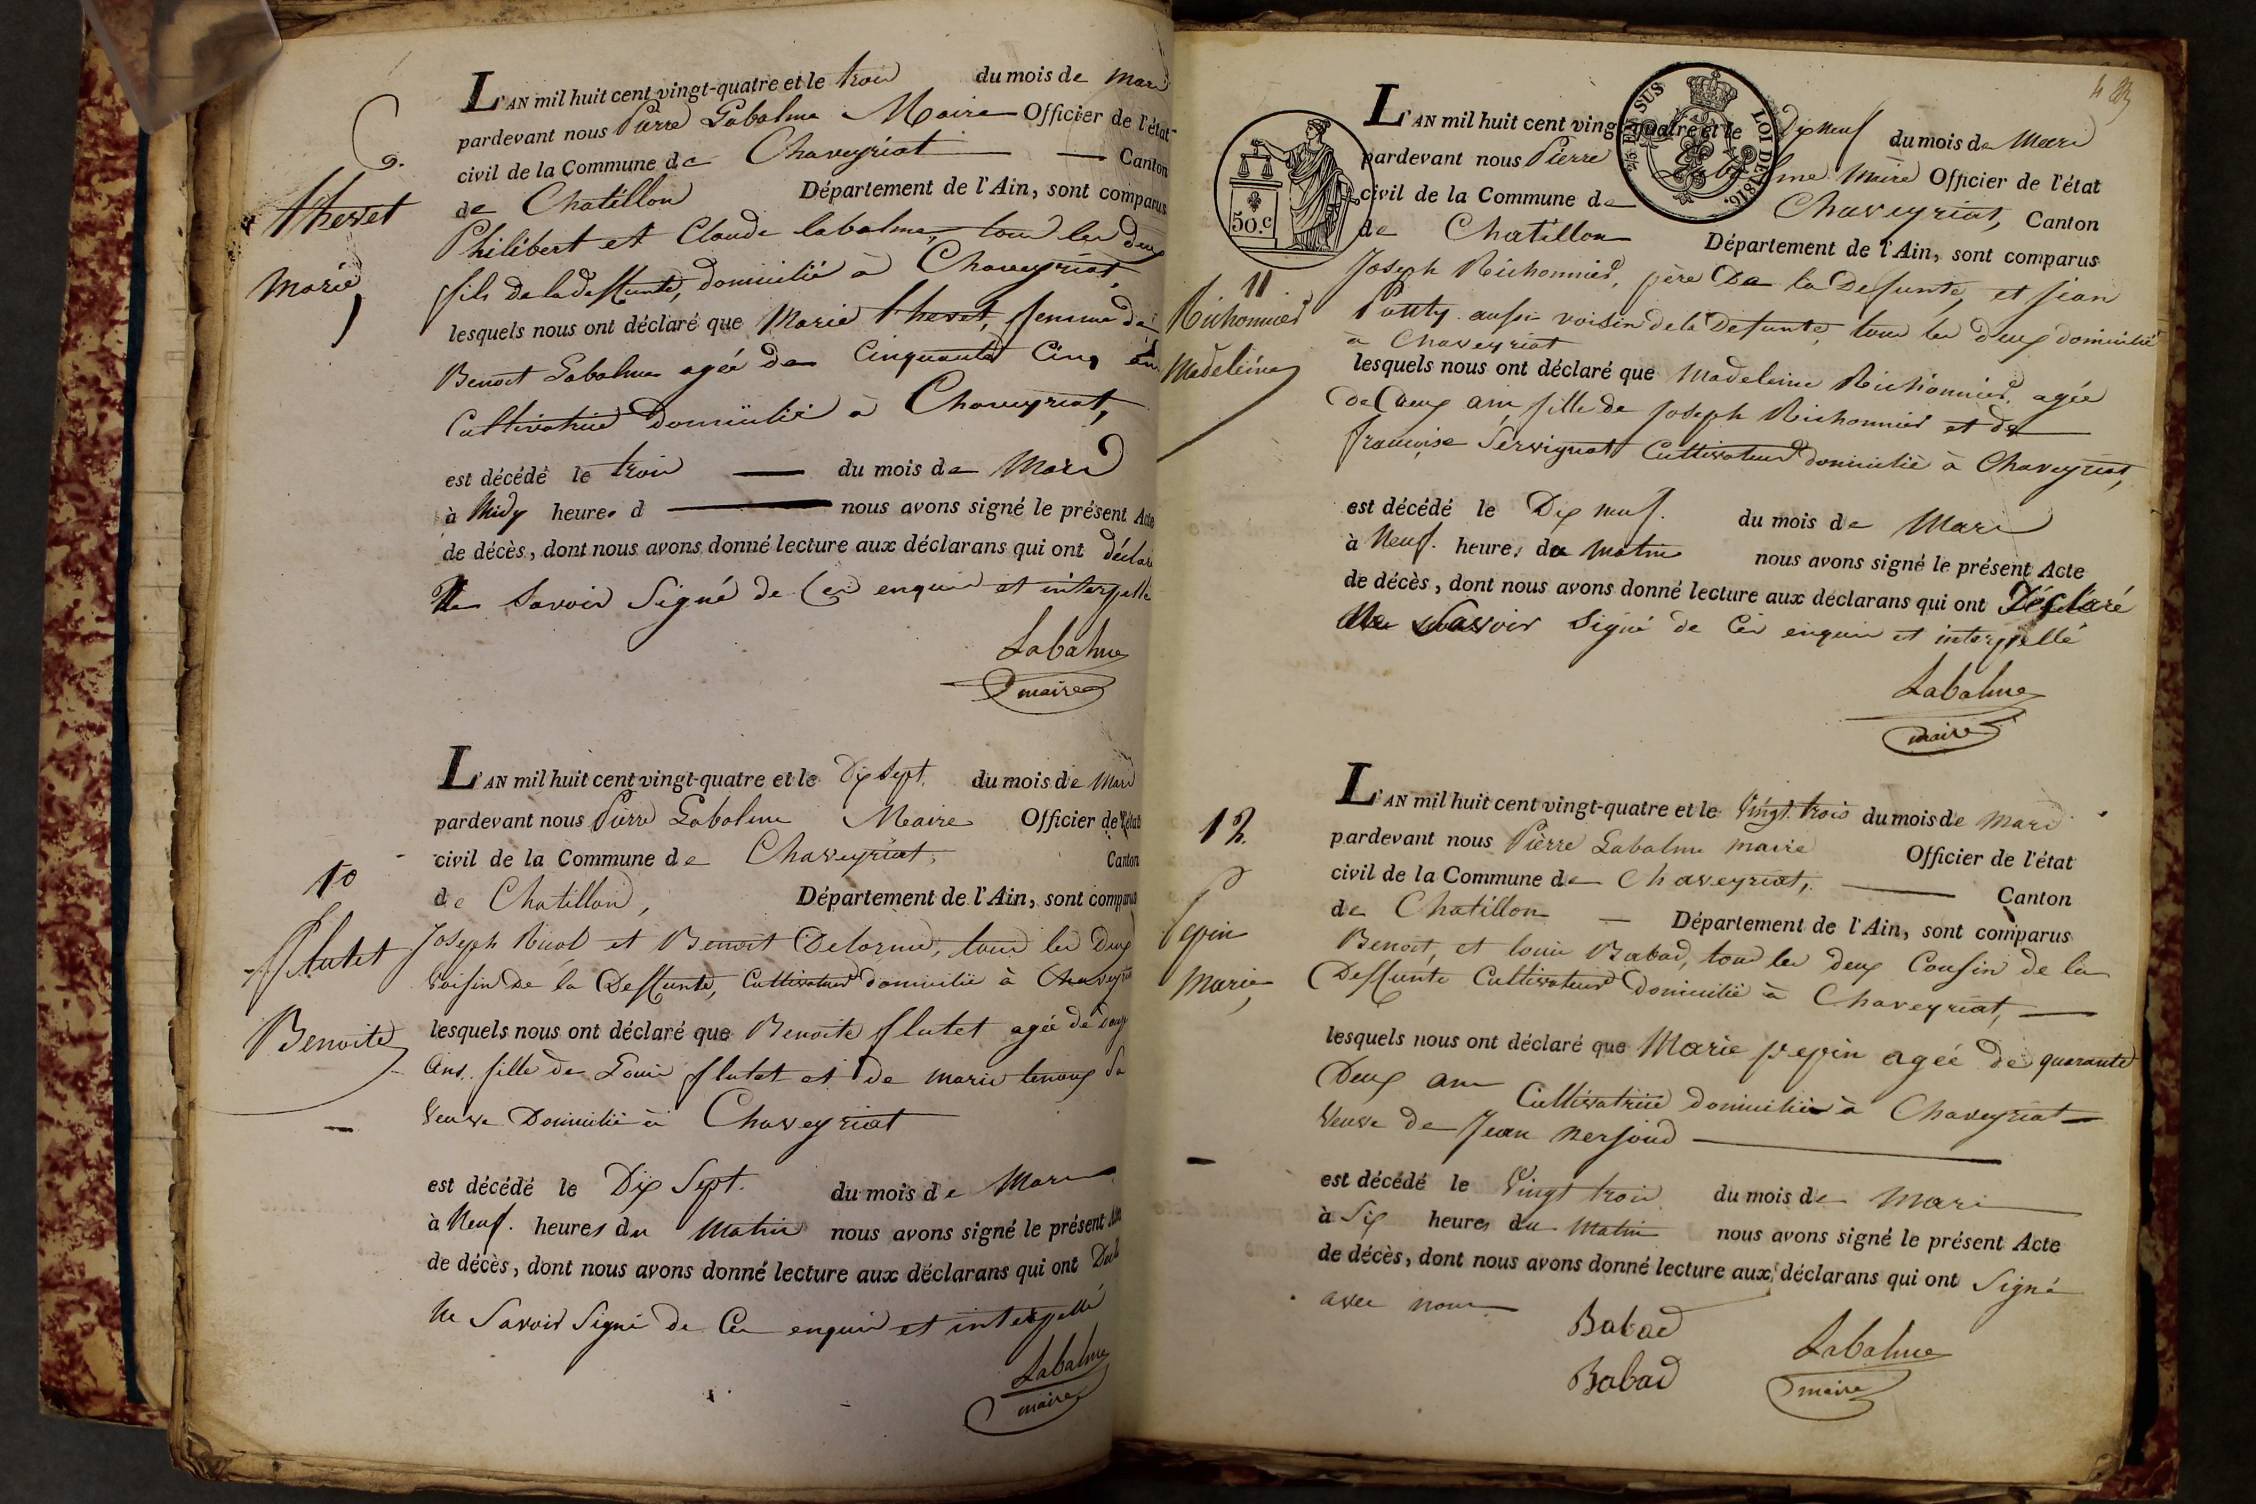 9.
thevet
Marie
L'AN mil huit cent vingt-quatre et le trois du mois de mars
pardevant nous Pierre Labalme Maire Officier de l'état
civil de la Commune de Chaveyriat Canton
de Chatillon Département de l'Ain, sont comparus
Philibert et Claude labalme, tous les deux
fils de la deffunte, domicilié à Chaveyriat,
lesquels nous ont déclaré que Marie thevet, femme de
Benoit Labalme agéé de Cinquante Cinq ans
Cultivatrice Domicilié à Chaveyriat,
est décédé le trois du mois de Mars
à Midy heures d nous avons signé le présent Acte
de décès, dont nous avons donné lecture aux déclarans qui ont déclaré
Ne Savoir Signé de Ces enquis et interpellé
Labalme
maire
10
flutet
Benoite
L'AN mil huit cent vingt-quatre et le Dix Sept. du mois de Mars
pardevant nous Pierre Labalme Maire Officier de l'état
civil de la Commune de Chaveyriat, Canton
de Chatillon, Département de l'Ain, sont comparus
Joseph et Benoit Delorme, tous les Deux
Voisin De la Deffunte, Cultivateur domicilié à Chaveyriat
lesquels nous ont déclaré que Benoite flutet agée de
Ans. fille de Louis flutet et de marie Sa
Veuve Domicilié à Chaveyriat
est décédé le Dix Sept. du mois de Mars
à Neuf. heures du Matin nous avons signé le présent Acte
de décès, dont nous avons donné lecture aux déclarans qui ont
Ne Savoir Signé de Ces enquis et interpellé
Labalme
maire
50.c
25 P. EN SUS LOI DE 1816.
11
Richonnier
Madeleine
L'AN mil huit cent vingt-quatre et le Dix neuf du mois de Mars
pardevant nous Pierre Labalme Maire Officier de l'état
civil de la Commune de Chaveyriat, Canton
de Chatillon Département de l'Ain, sont comparus
Joseph Richonnier, père De la Defunte, et jean
aussi voisin de la Defunte, tous les deux domicilié
à Chaveyriat
lesquels nous ont déclaré que Madeleine Richonnier. agée
de Deux ans, fille de Joseph Richonnier et de
françoise Servignat Cultivateur domicilié à Chaveyriat,
est décédé le Dix neuf. du mois de Mars
à Neuf. heures du Matin nous avons signé le présent Acte
de décès, dont nous avons donné lecture aux déclarans qui ont Déclaré
Ne Savoir Signé de Ces enquis et interpellé
Labalme
maire
12.
Pepin
Marie
L'AN mil huit cent vingt-quatre et le Vingt trois du mois de Mars
pardevant nous Pierre Labalme maire Officier de l'état
civil de la Commune de Chaveyriat, Canton
de Chatillon Département de l'Ain, sont comparus
Benoit, et louis Babad, tous les deux Cousin de la
Deffunte Cultivateur Domicilié à Chaveyriat,
lesquels nous ont déclaré que Marie pepin agéé de quarante
Deux ans Cultivatrice domicilié à Chaveyriat
Veuve de Jean
est décédé le Vingt trois du mois de Mars
à Six heures du Matin nous avons signé le présent Acte
de décès, dont nous avons donné lecture aux déclarans qui ont Signé
avec nous
Babad
Labalme
Babad
maire